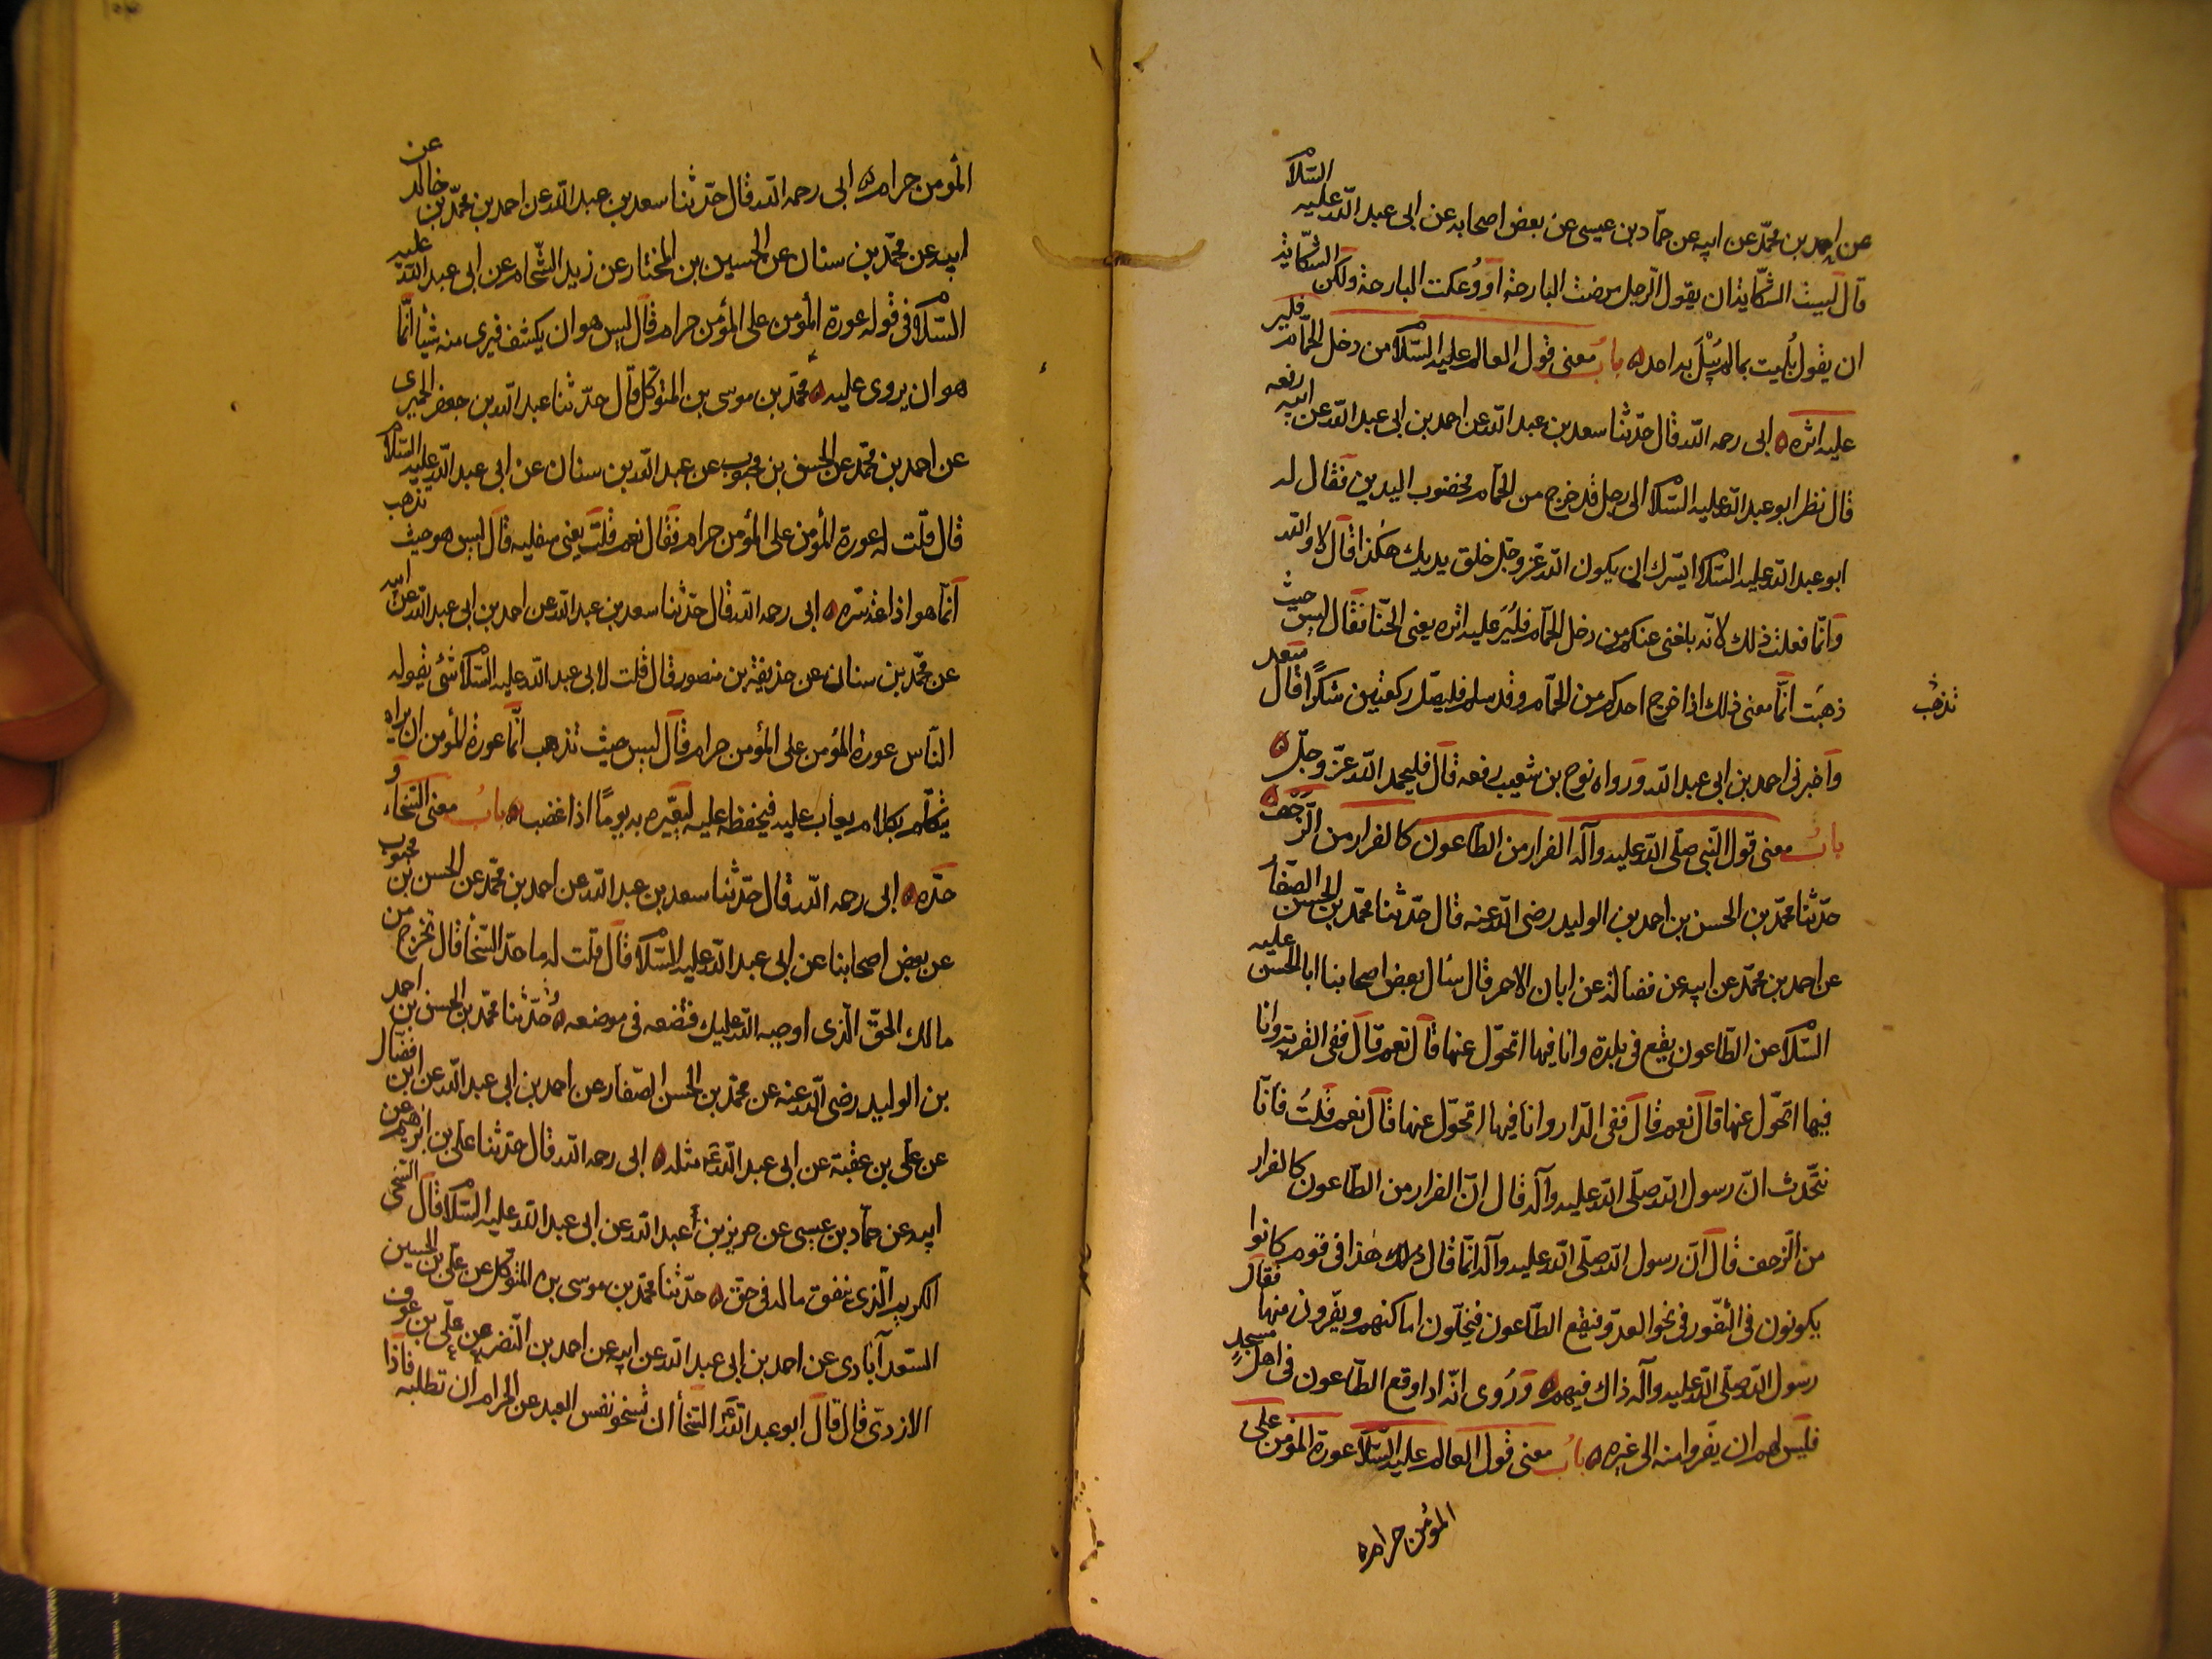 عن احمد بن محمّد عن ابيه عن حمّاد بن عيسى عن بعض اصحابه عن ابى عبد الله عليه السّلام
قال ليست الشّكاية ان يقول الرّجل مرضت البارحة او وُعكت البارحة ولكن الشّكاية
ان يقول بُليت بما لم يُبْلَ به احد ه بابُ معنى قول العالم عليه السّلام من دخل الحمّام فلير
عليه اثره ه ابى رحمه الله قال حدّثنا سعد بن عبد الله عن احمد بن ابى عبد الله عن ابيه رفعه
قال نظر ابو عبد الله عليه السّلام الى رجل قد خرج من الحمّام مخضوب اليدين فقال له
ابو عبد الله عليه السّلام ايسّرك ان يكون الله عزّ وجلّ خلق يديك هكذا قال لا والله
وانّما فعلت ذلك لانّه بلغنى عنكم من دخل الحمّام فليُرَ عليه اثره يعنى الحنّا فقال ليس حيث
ذهبَت انّما معنى ذلك اذا خرج احدكم من الحمّام وقد سلم فليصلّ ركعتين شكرًا قال سعد
تذهَب
واخبرنى احمد بن ابى عبد الله ورواه نوح بن شعيب رفعه قال فليحمد الله عزّ وجلّ ه
بابُ معنى قول النّبى صلّى الله عليه وآله الفرار من الطّاعون كالفرار من الزّحف ه
حدّثنا محمّد بن الحسن بن احمد بن الوليد رضى الله عنه قال حدّثنا محمّد بن الحسن الصفّار
عن احمد بن محمّد عن ابيه عن فضالة عن ابان الاحمر قال سئال بعض اصحابنا ابا الحسن عليه
السّلام عن الطّاعون يقع فى بلدة وانا فيها اتحوّل عنها قال نعم قال ففى القرية وانا
فيها اتحوّل عنها قال نعم قال ففى الدّار وانا فيها اتحوّل عنها قال نعم قلتُ فانّا
نتحّدث انّ رسول الله صلّى الله عليه وآله قال انّ الفرار من الطّاعون كالفرار
من الزحف قال انّ رسول الله صلّى الله عليه وآله انّما قال ذلك هذا فى قوم كانوا
يكونون فى الثغور فى نحو العدوّ فيقع الطّاعون فيخلّون اماكنهم ويفرّون منها فقال
رسول الله صلّى الله عليه وآله ذاك فيهم ه ورُوى انّه اذا وقع الطّاعون فى اهل مسجدٍ
فليس لهم ان يفرّوا منه الى غيره ه بابُ معنى قول العالم عليه السّلام عورة المؤمن على
المؤمن حرام ه
المؤمن حرام ه ابى رحمه الله قال حدّثنا سعد بن عبد الله عن احمد بن محمّد بن خالد عن
ابيه عن محمّد بن سنان عن الحسين بن المختار عن زيد الشّحام عن ابى عبد الله عليه
السّلام فى قوله عورة المؤمن على المؤمن حرام قال ليس هو ان يكشف فيرى منه شيئا انّما
هو ان يروى عليه ه محمّد بن موسى بن المتوكّل قال حدّثنا عبد الله بن جعفر الحميرى
عن احمد بن محمّد عن الحسن بن محبوب عن عبد الله بن سنان عن ابى عبد الله عليه السّلام
قال قلت له عورة المؤمن على المؤمن حرام فقال نعم قلت يعنى سفليه قال ليس هو حيث تذهب
انّما هو اذاعة سرّه ه ابى رحمه الله قال حدّثنا سعد بن عبد الله عن احمد بن ابى عبد الله عن ابيه
عن محمّد بن سنان عن حذيفة بن منصور قال قلت لابى عبد الله عليه السّلام شئ يقوله
النّاس عورة المؤمن على المؤمن حرام قال ليس حيث تذهب انّما عورة المؤمن ان يراه
يتكلّم بكلام يعاب عليه فيحفظه عليه ليعيّره به يومًا اذا غضب ه بابُ معنى السّخاء و
حدّه ه ابى رحمه الله قال حدّثنا سعد بن عبد الله عن احمد بن محمّد عن الحسن بن محبوب
عن بعض اصحابنا عن ابى عبد الله عليه السّلام قال قلت له ما حدّ السّخأ قال تخرج من
مالك الحقّ الّذى اوجبه الله عليك فتضعه فى موضعه ه حدّثنا محمّد بن الحسن بن احمد
بن الوليد رضى الله عنه عن محمّد بن الحسن الصّفار عن احمد بن ابى عبد الله عن ابن فضّال
عن على بن عقبة عن ابى عبد الله ع مثله ه ابى رحمه الله قال حدّثنا علىّ بن ابرهيم عن
ابيه عن حمّاد بن عيسى عن حريز بن عبد الله عن ابى عبد الله عليه السّلام قال السّخى
الكريم الّذى ينفق ماله فى حقّ ه حدّثنا محمّد بن موسى بن المتوكّل عن علىّ بن الحسين
السّعد آبادى عن احمد بن ابى عبد الله عن ابيه عن احمد بن النّضر عن علىّ بن عوف
الازدىّ قال قال ابو عبد الله ع السّخأ ان تسخو نفس العبد عن الحرام ان تطلبه فاذا